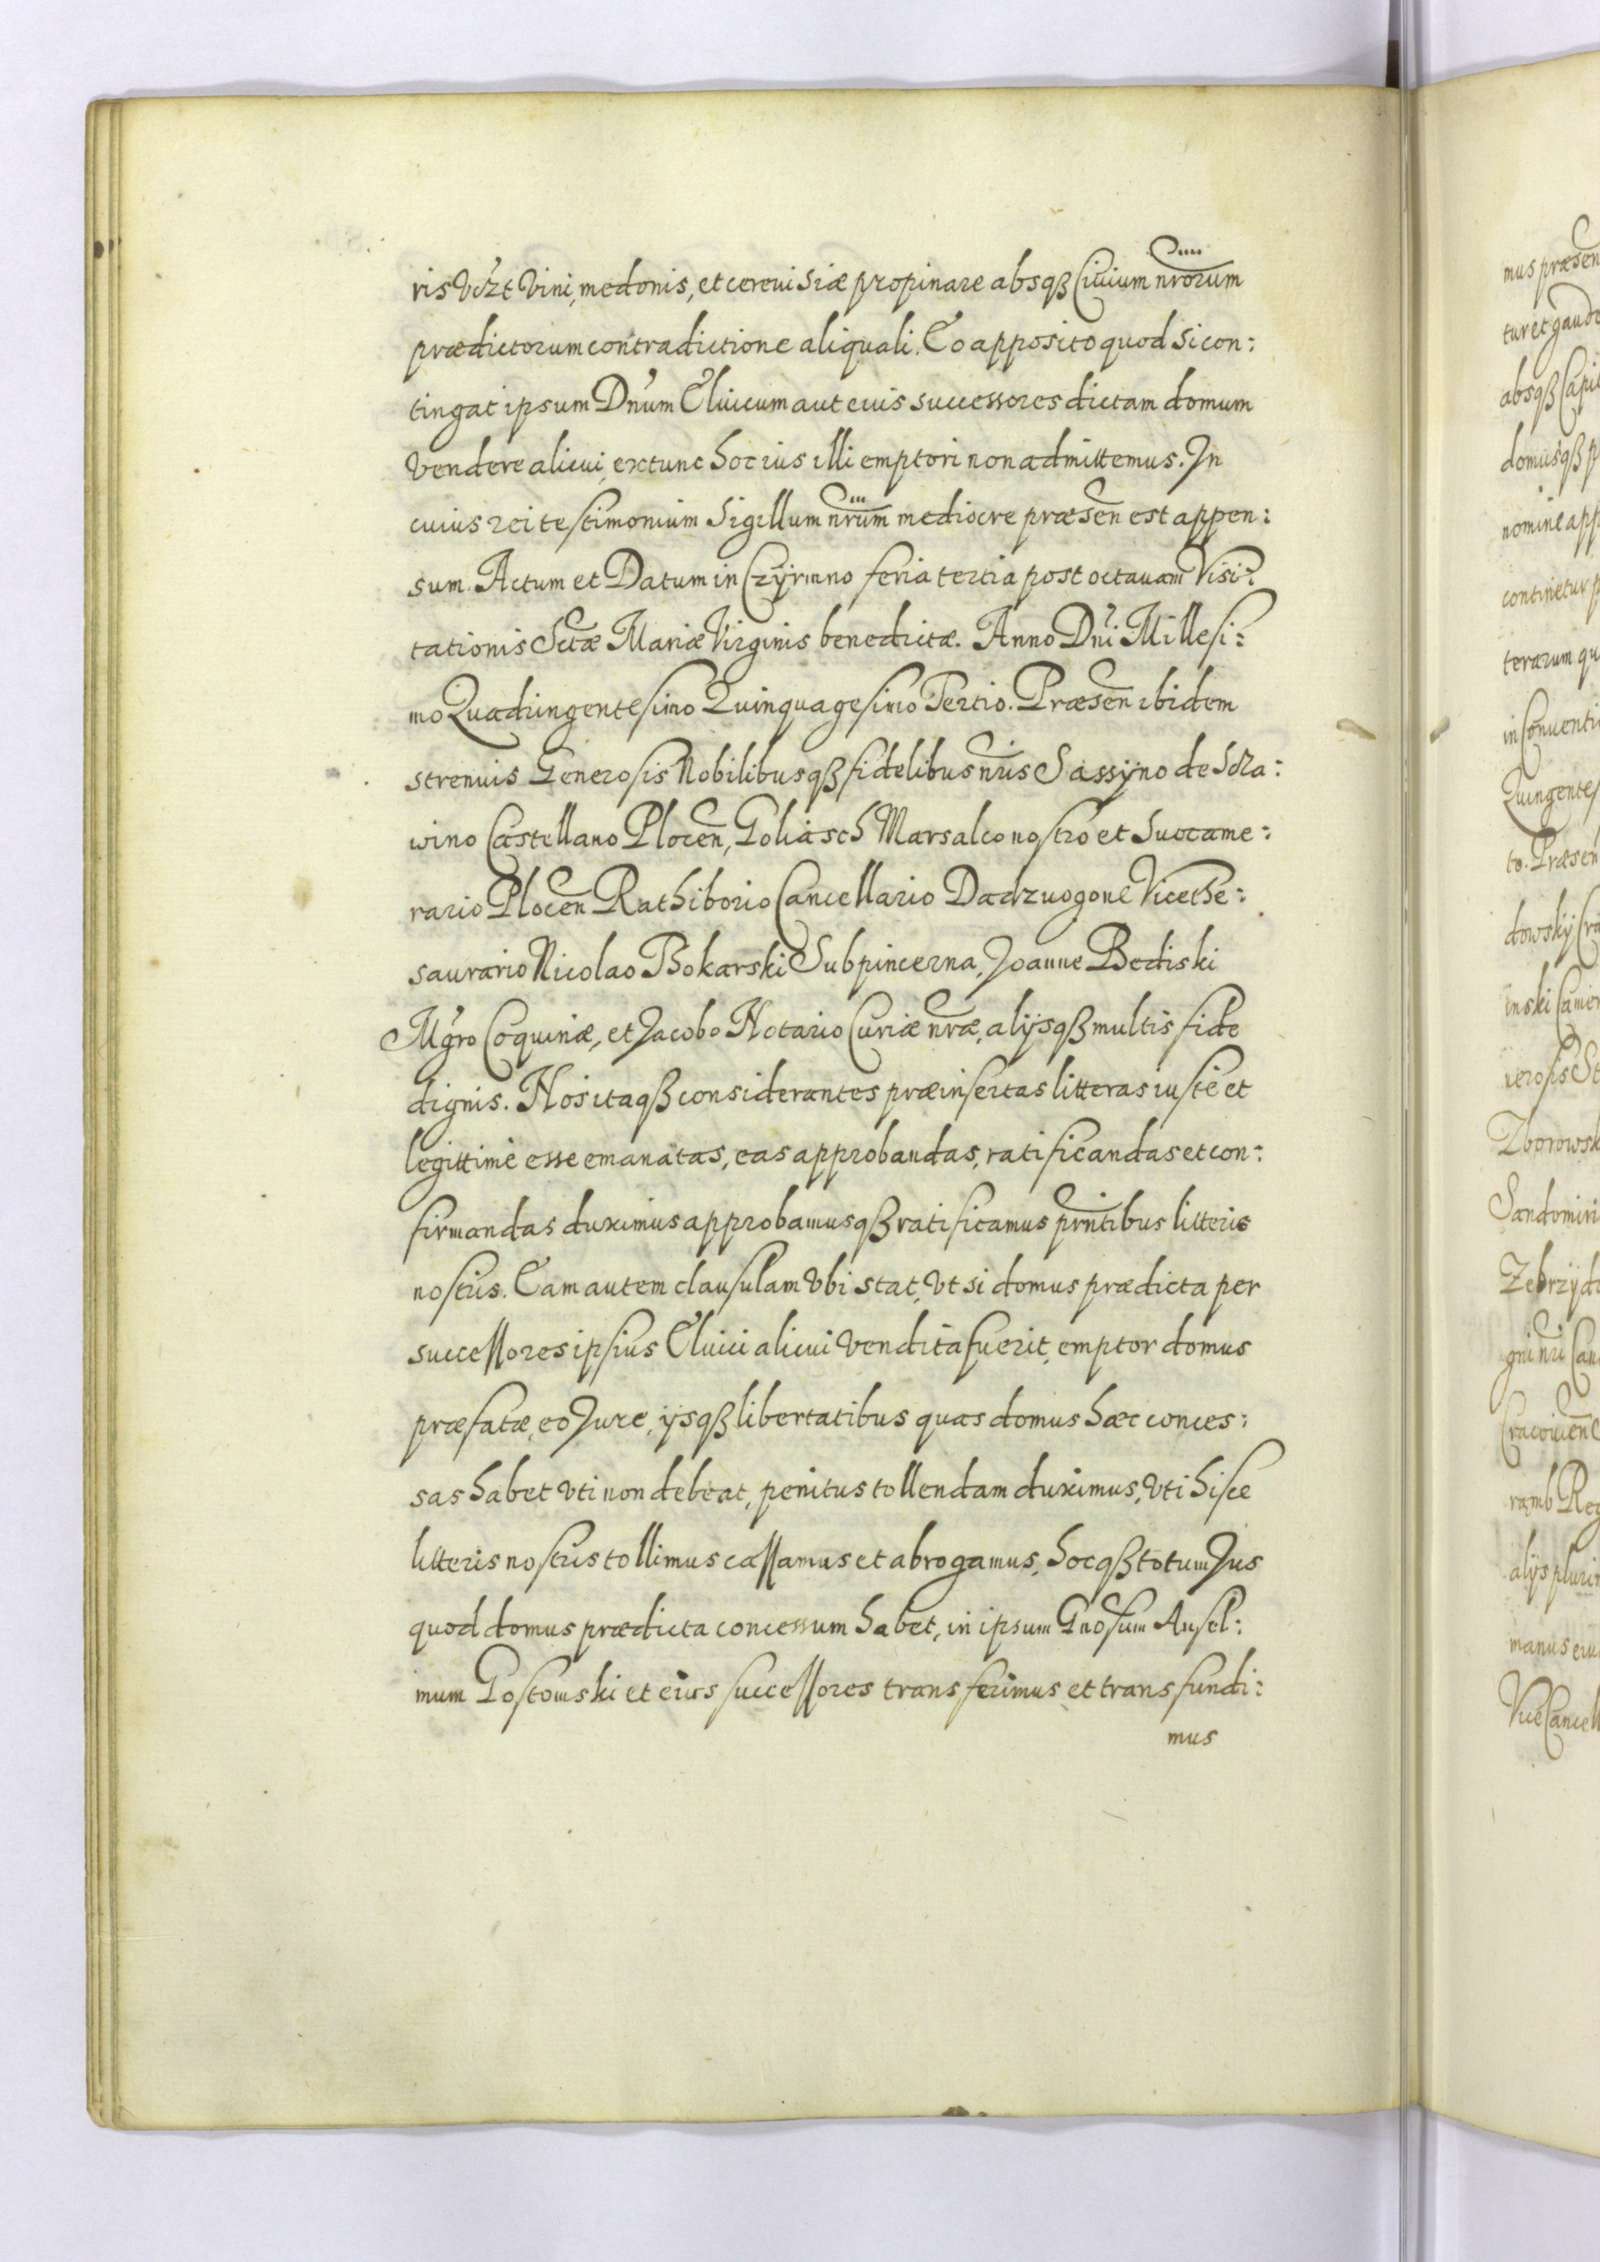 ris vczt vini, medonis, et cereuisiæ propinare absqß Ciuium nrorum
prædictorum contradictione aliquali. Eo apposito quod si con:
tingat ipsum Dnum Eluicum aut eius successores dictam domum
vendere alicui, extunc hoc ius illi emptori non admittemus. In
cuius rei testimonium Sigillum nrum mediocre præsen est appen:
sum. Actum et Datum in Czÿrmno feria tertia post octauam Visi:
tationis Sctæ Mariæ Virginis benedictæ. Anno Dni Millesi:
mo Quadringentesimo Quinquagesimo Tertio. Præsen ibidem
strenuis Generosis Nobilibusqß fidelibus nris Sassÿno de Sdra:
wino Castellano Plocen, Goliasch Marsalco nostro et Succame:
rario Plocen Rathiborio Cancellario Dadzuogone Vicethe:
saurario Nicolao Bokarski Subpincerna, Joanne Bediski
Mgro Coquinæ, et Jacobo Notario Curiæ nræ, alijsqß multis fide
dignis. Nos itaqß considerantes præinsertas litteras iustè et
legittimè esse emanatas, eas approbandas, ratificandas et con:
firmandas duximus approbamusqß ratificamus prntibus litteris
nostris. Eam autem clausulam vbi stat, vt si domus prædicta per
successores ipsius Eluici alicui vendita fuerit, emptor domus
præfatæ, eo Jure, ijsqß libertatibus quas domus hæc conces:
sas habet vti non debeat, penitus tollendam duximus, vti hisce
litteris nostris tollimus cassamus et abrogamus, hocqß totum Jus
quod domus prædicta concessum habet, in ipsum Gnosum Ansel:
mum Gostowski et eius successores transferimus et transfundi:
mus
mus præsen
tur et gaude
absqß Capit
domusqß p
nomine app
continetur p
terarum qu
in Conuenti
Quingentes
to. Præsen
dowskÿ Cra
inski Camer
nerosis St
Zborowsk
Sandomiri
Zebrzÿdo
gni nri Can
Cracouien
ramb Reg
alijs plurim
manus eiu
ViceCancell